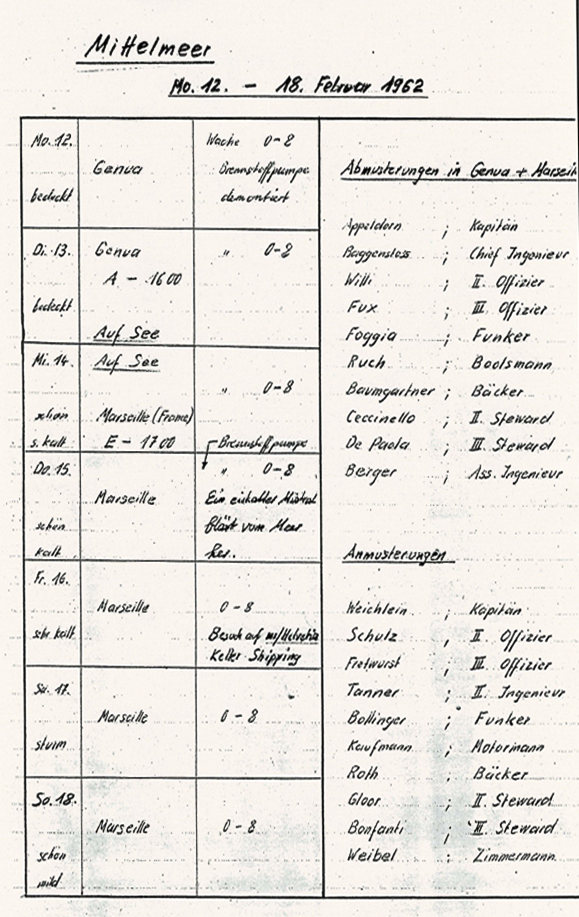 Mittelmeer
Mo. 12. – 18. Februar 1962
Mo. 12.
Genua
bedeckt
Wache 0-8
Brennstoffpumpe
demontiert
Di. 13.
Genua
A – 1600
bedeckt
Auf See
" 0-2
Mi. 14.
Auf See
schön
Marseille (France)
s. kalt
E – 1700
" 0-8
Brennstoffpumpe
Do. 15.
Marseille
schön
kalt
" 0-8
Ein eiskalter Mistral
bläst vom Meer
her.
Fr. 16.
Marseille
sehr kalt
0-8
Besuch auf m/s Helvetia
Keller Shipping
Sa. 17.
Marseille
sturm
0-8
So. 18.
Marseille
schön
mild
0-8
Abmusterungen in Genua + Marseille
Appeldorn ; Kapitän
Baggenstoss ; Chief Ingenieur
Willi ; II. Offizier
Fux ; III. Offizier
Foggia ; Funker
Ruch ; Bootsmann
Baumgartner ; Bäcker
Ceccinello ; II. Steward
De Paola ; III. Steward
Berger ; Ass. Ingenieur
Anmusterungen
Weichlein ; Kapitän
Schulz ; II. Offizier
Fretwurst ; III. Offizier
Tanner ; II. Ingenieur
Bollinger ; Funker
Kaufmann ; Motormann
Roth ; Bäcker
Gloor ; II. Steward
Bonfanti ; III. Steward
Weibel ; Zimmermann